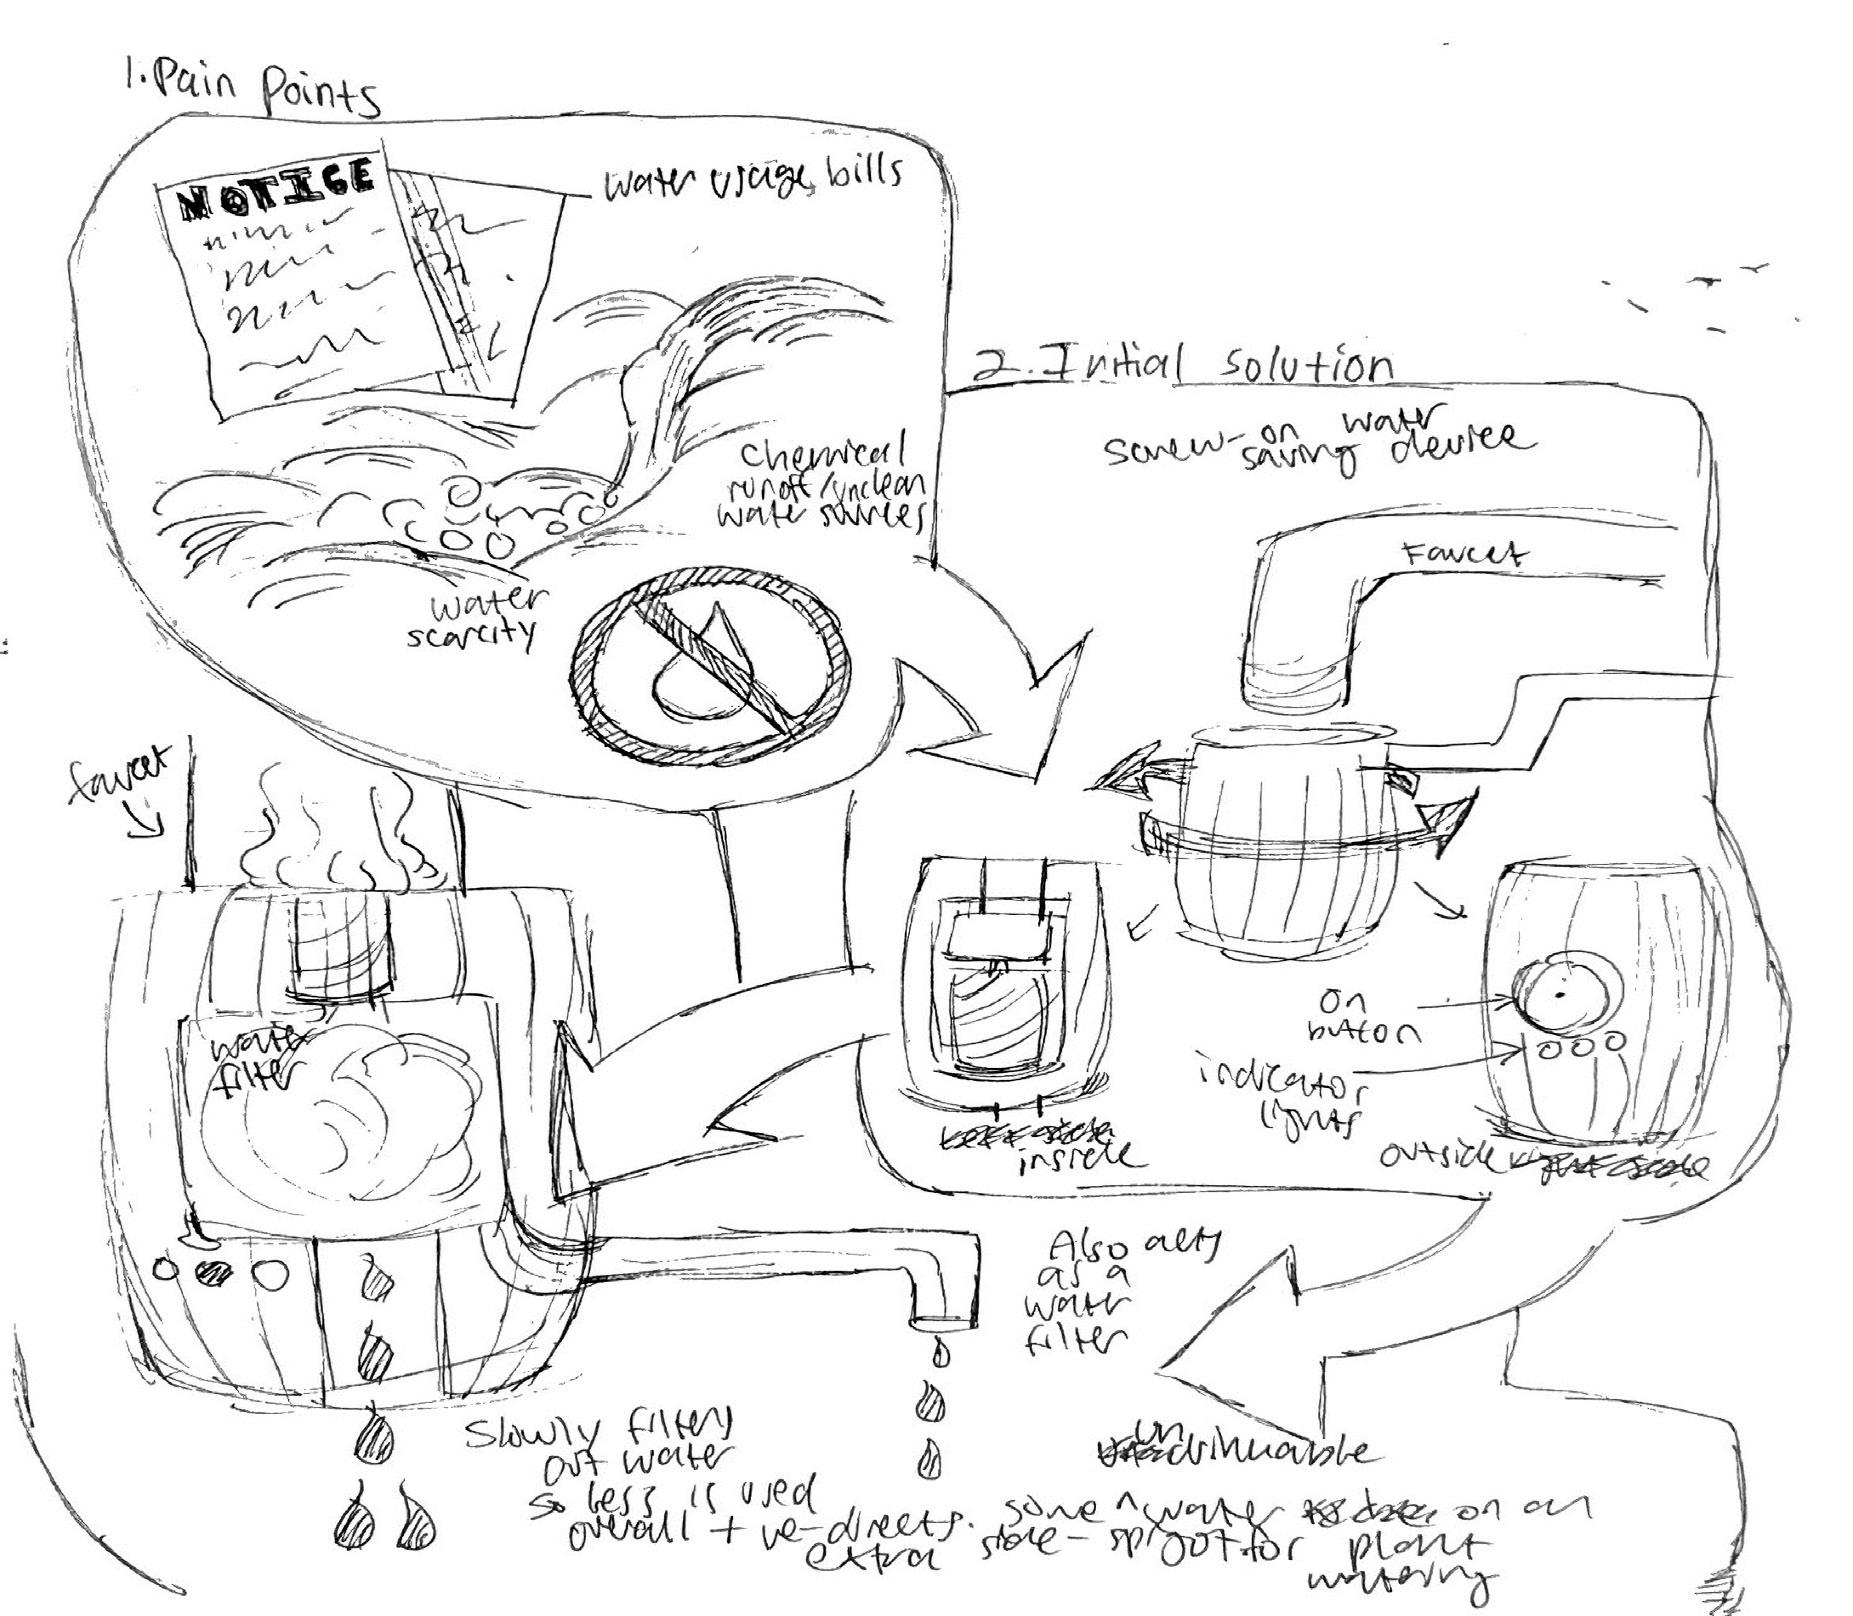 1. Pain Points
NOTICE
water usage bills
chemical
runoff/unclean
water sources
water
scarcity
2. Initial solution
screw-on water
saving device
Faucet
faucet
water
filter
on
button
indicator
lights
inside
outside
Also acts
as a
water
filter
Slowly filters
out water
so less is used
overall + re-directs some undrinkable water on an
extra side-sprout for plant
watering